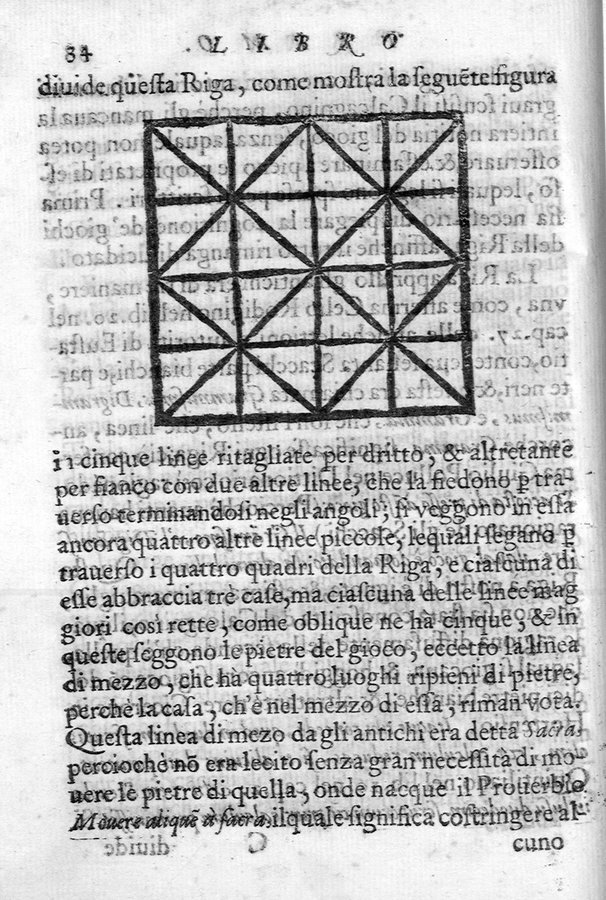 34
LIBRO
diuide questa Riga, come mostra la seguẽte figura
in cinque linee ritagliate per dritto, & altretante
per fianco con due altre linee, che la fiedono ꝑ tra-
uerso terminandosi negli angoli; si veggono in essa
ancora quattro altre linee piccole, lequali segano ꝑ
trauerso i quattro quadri della Riga, e ciascuna di
esse abbraccia trè case, ma ciascuna delle linee mag
giori così rette, come oblique ne ha cinque, & in
queste seggono le pietre del gioco, eccetto la linea
di mezzo, che hà quattro luoghi ripieni di pietre,
perchè la casa, ch'è nel mezzo di essa, riman vota.
Questa linea di mezo da gli antichi era detta Sacra,
percioche nõ era lecito senza gran necessità di mo-
uere le pietre di quella, onde nacque il Prouerbio.
Mouere aliquẽ à sacra, ilquale significa costringere al-
C
cuno